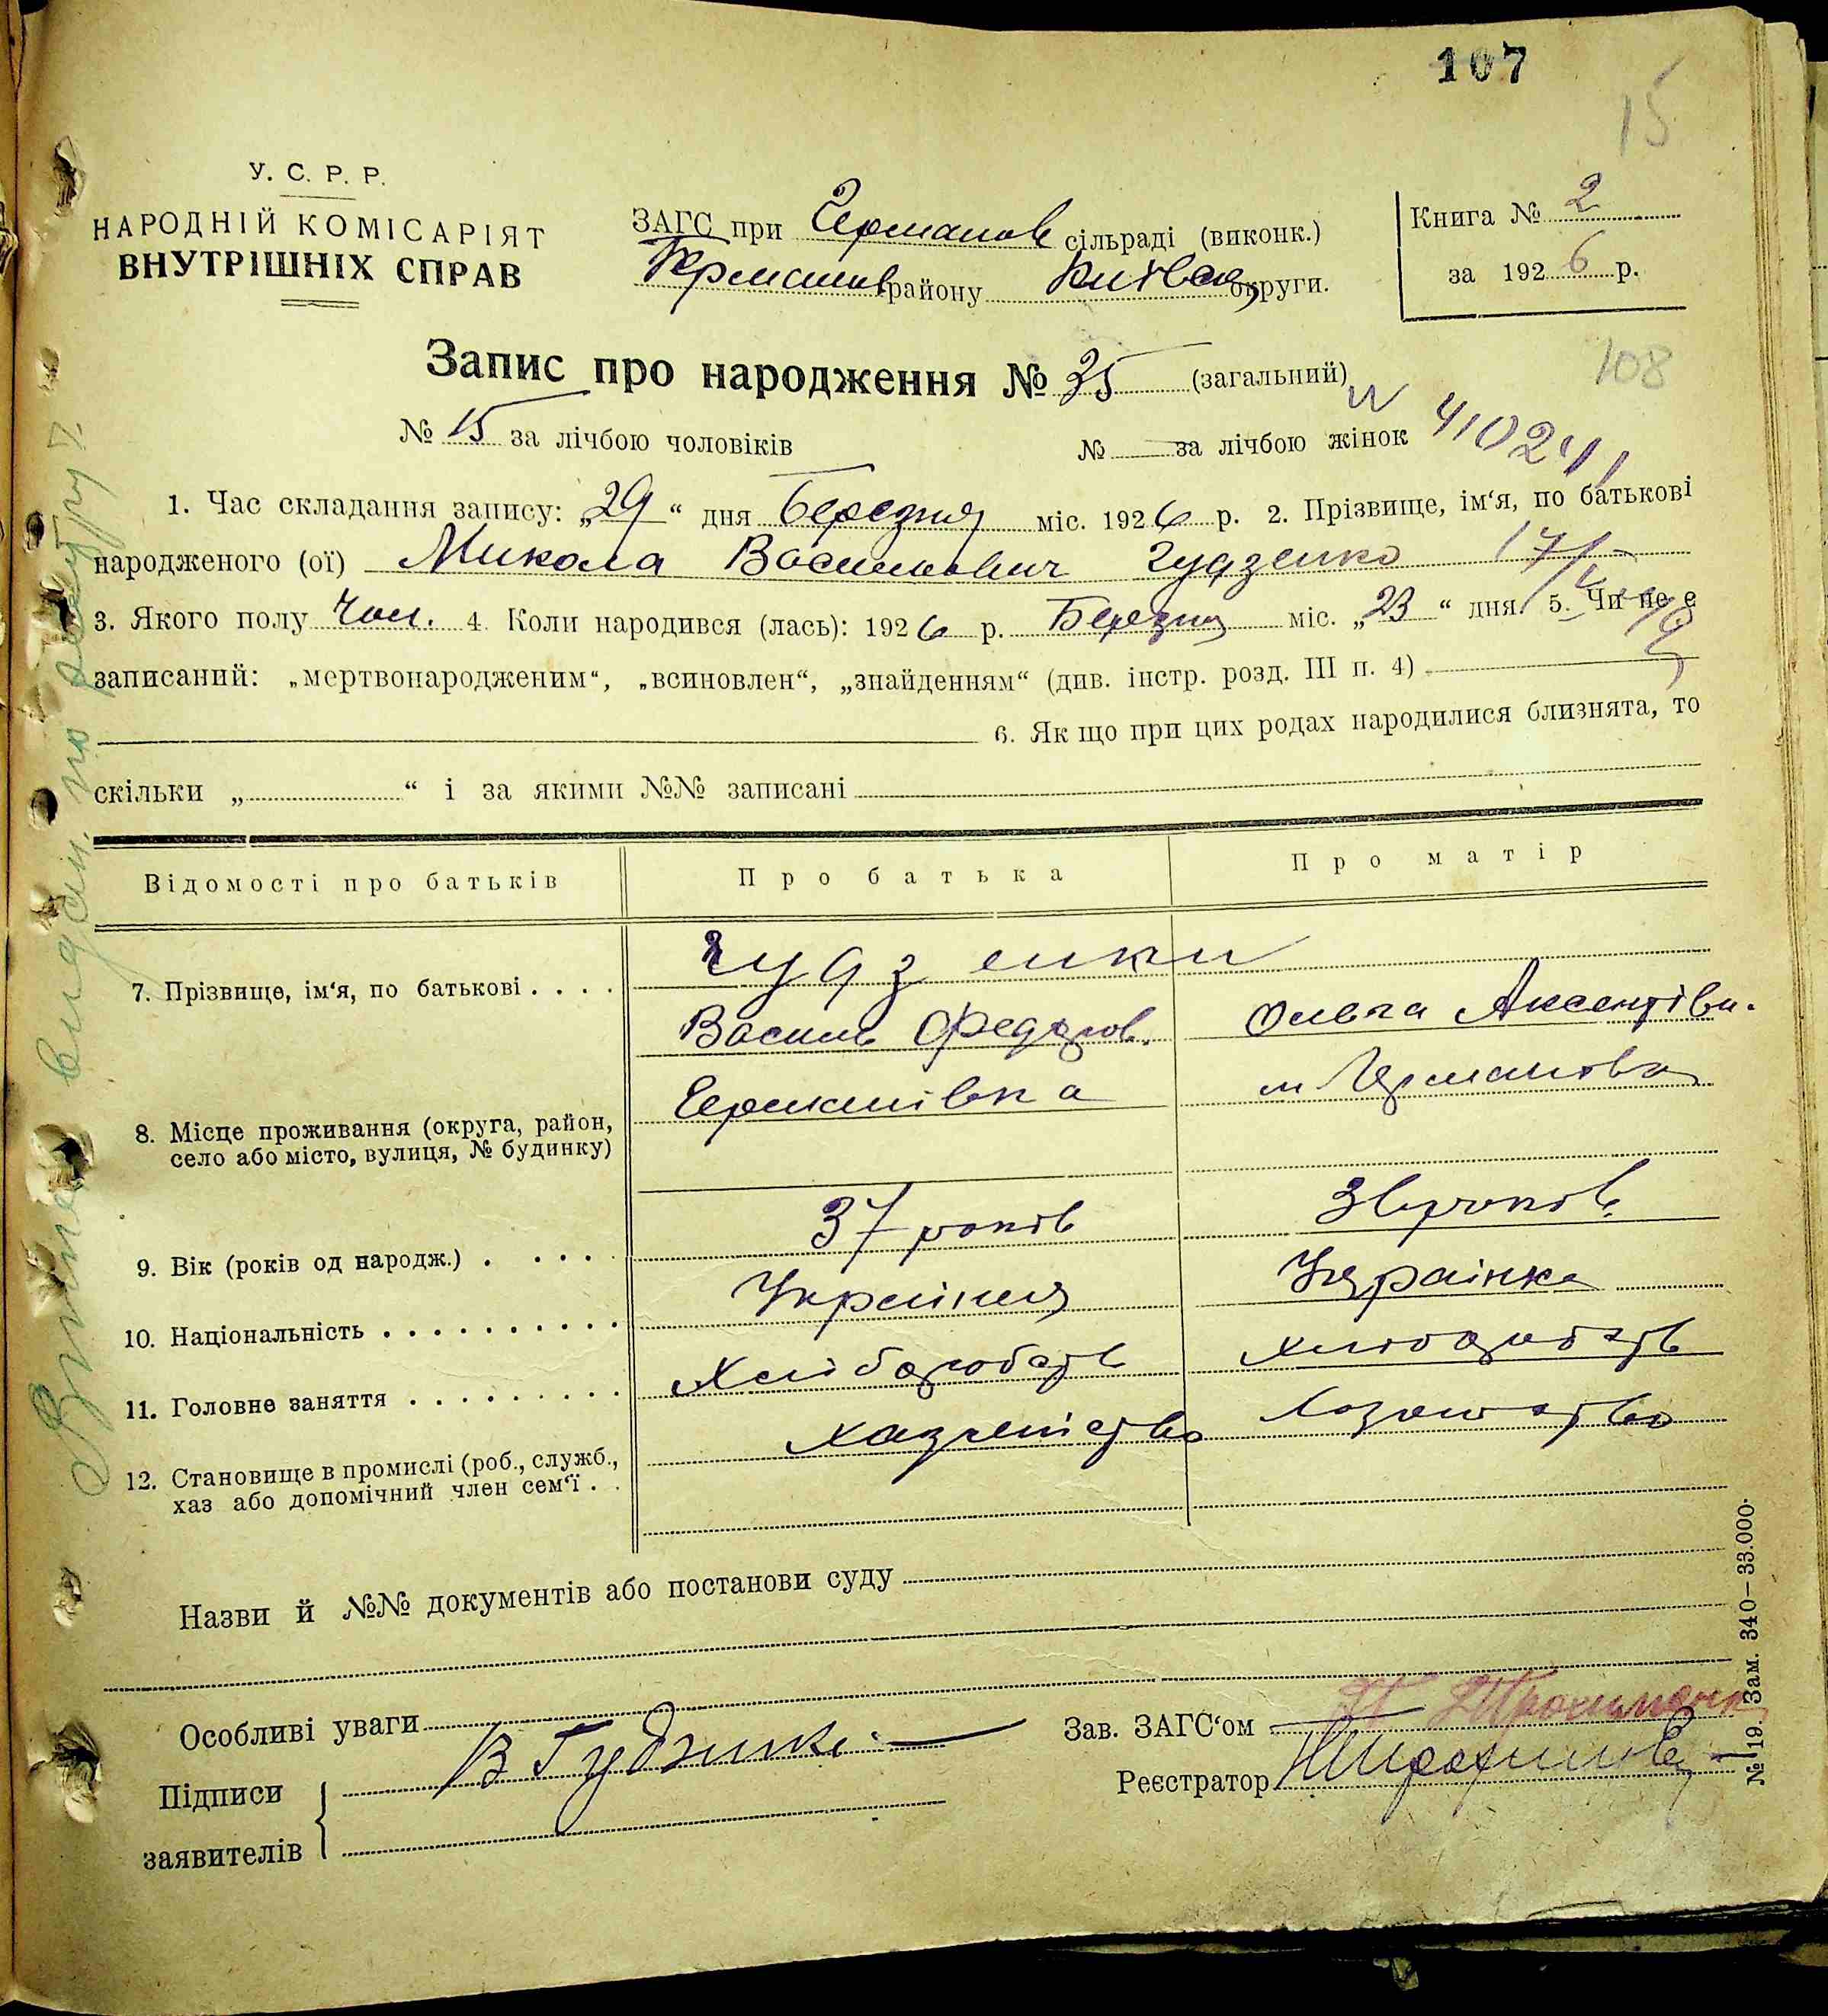 107
15
У. С. Р. Р.
НАРОДНІЙ КОМІСАРІЯТ
ВНУТРІШНІХ СПРАВ
ЗАГС при Германов сільраді (виконк.)
Германов району Київськ округи.
Книга № 2
за 1926 р.
Запис про народження № 35 (загальний)
108
№ 15 за лічбою чоловіків
№ — за лічбою жінок
410241
1. Час складання запису: „29“ дня Березня міс. 1926 р. 2. Прізвище, ім‘я, по батькові
народженого (ої) Микола Васильович Гудзенко
3. Якого полу Чол. 4 Коли народився (лась): 1926 р. Березня міс. „23“ дня. 5. Чи не є
записаний: „мертвонародженим“, „всиновлен“, „знайденням“ (див. інстр. розд. III п. 4)
6. Як що при цих родах народилися близнята, то
скільки „ “ і за якими №№ записані
Відомості про батьків
Про батька
Про матір
7. Прізвище, ім‘я, по батькові . . . .
Гудзенки
Василь Федоров.
Ольга Аксентівн.
8. Місце проживання (округа, район,
село або місто, вулиця, № будинку)
Германівка
м Германівка
9. Вік (років од народж.) . . . .
37 років
36 років
10. Національність . . . . . . . . . .
Українець
Українка
11. Головне заняття . . . . . . . . .
Хліборобств
хліборобств
12. Становище в промислі (роб., служб.,
хаз або допомічний член сем‘ї . .
хазяйство
хазяйство
Назви й №№ документів або постанови суду
Особливі уваги
Підписи
заявителів
В Гудзенко
Зав. ЗАГС‘ом
Реєстратор
№ 19. Зам. 340—33.000.